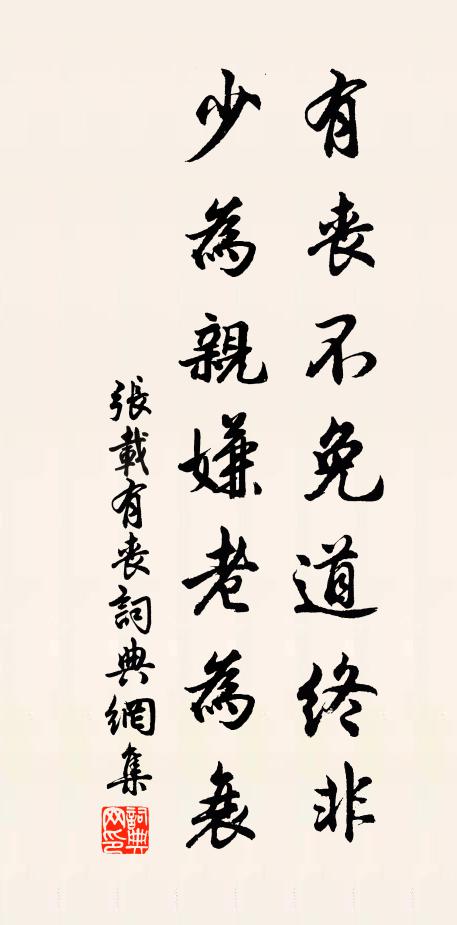 有喪不免道終非
少為親嫌老為衰
張載有喪詞典網集
詞典網印